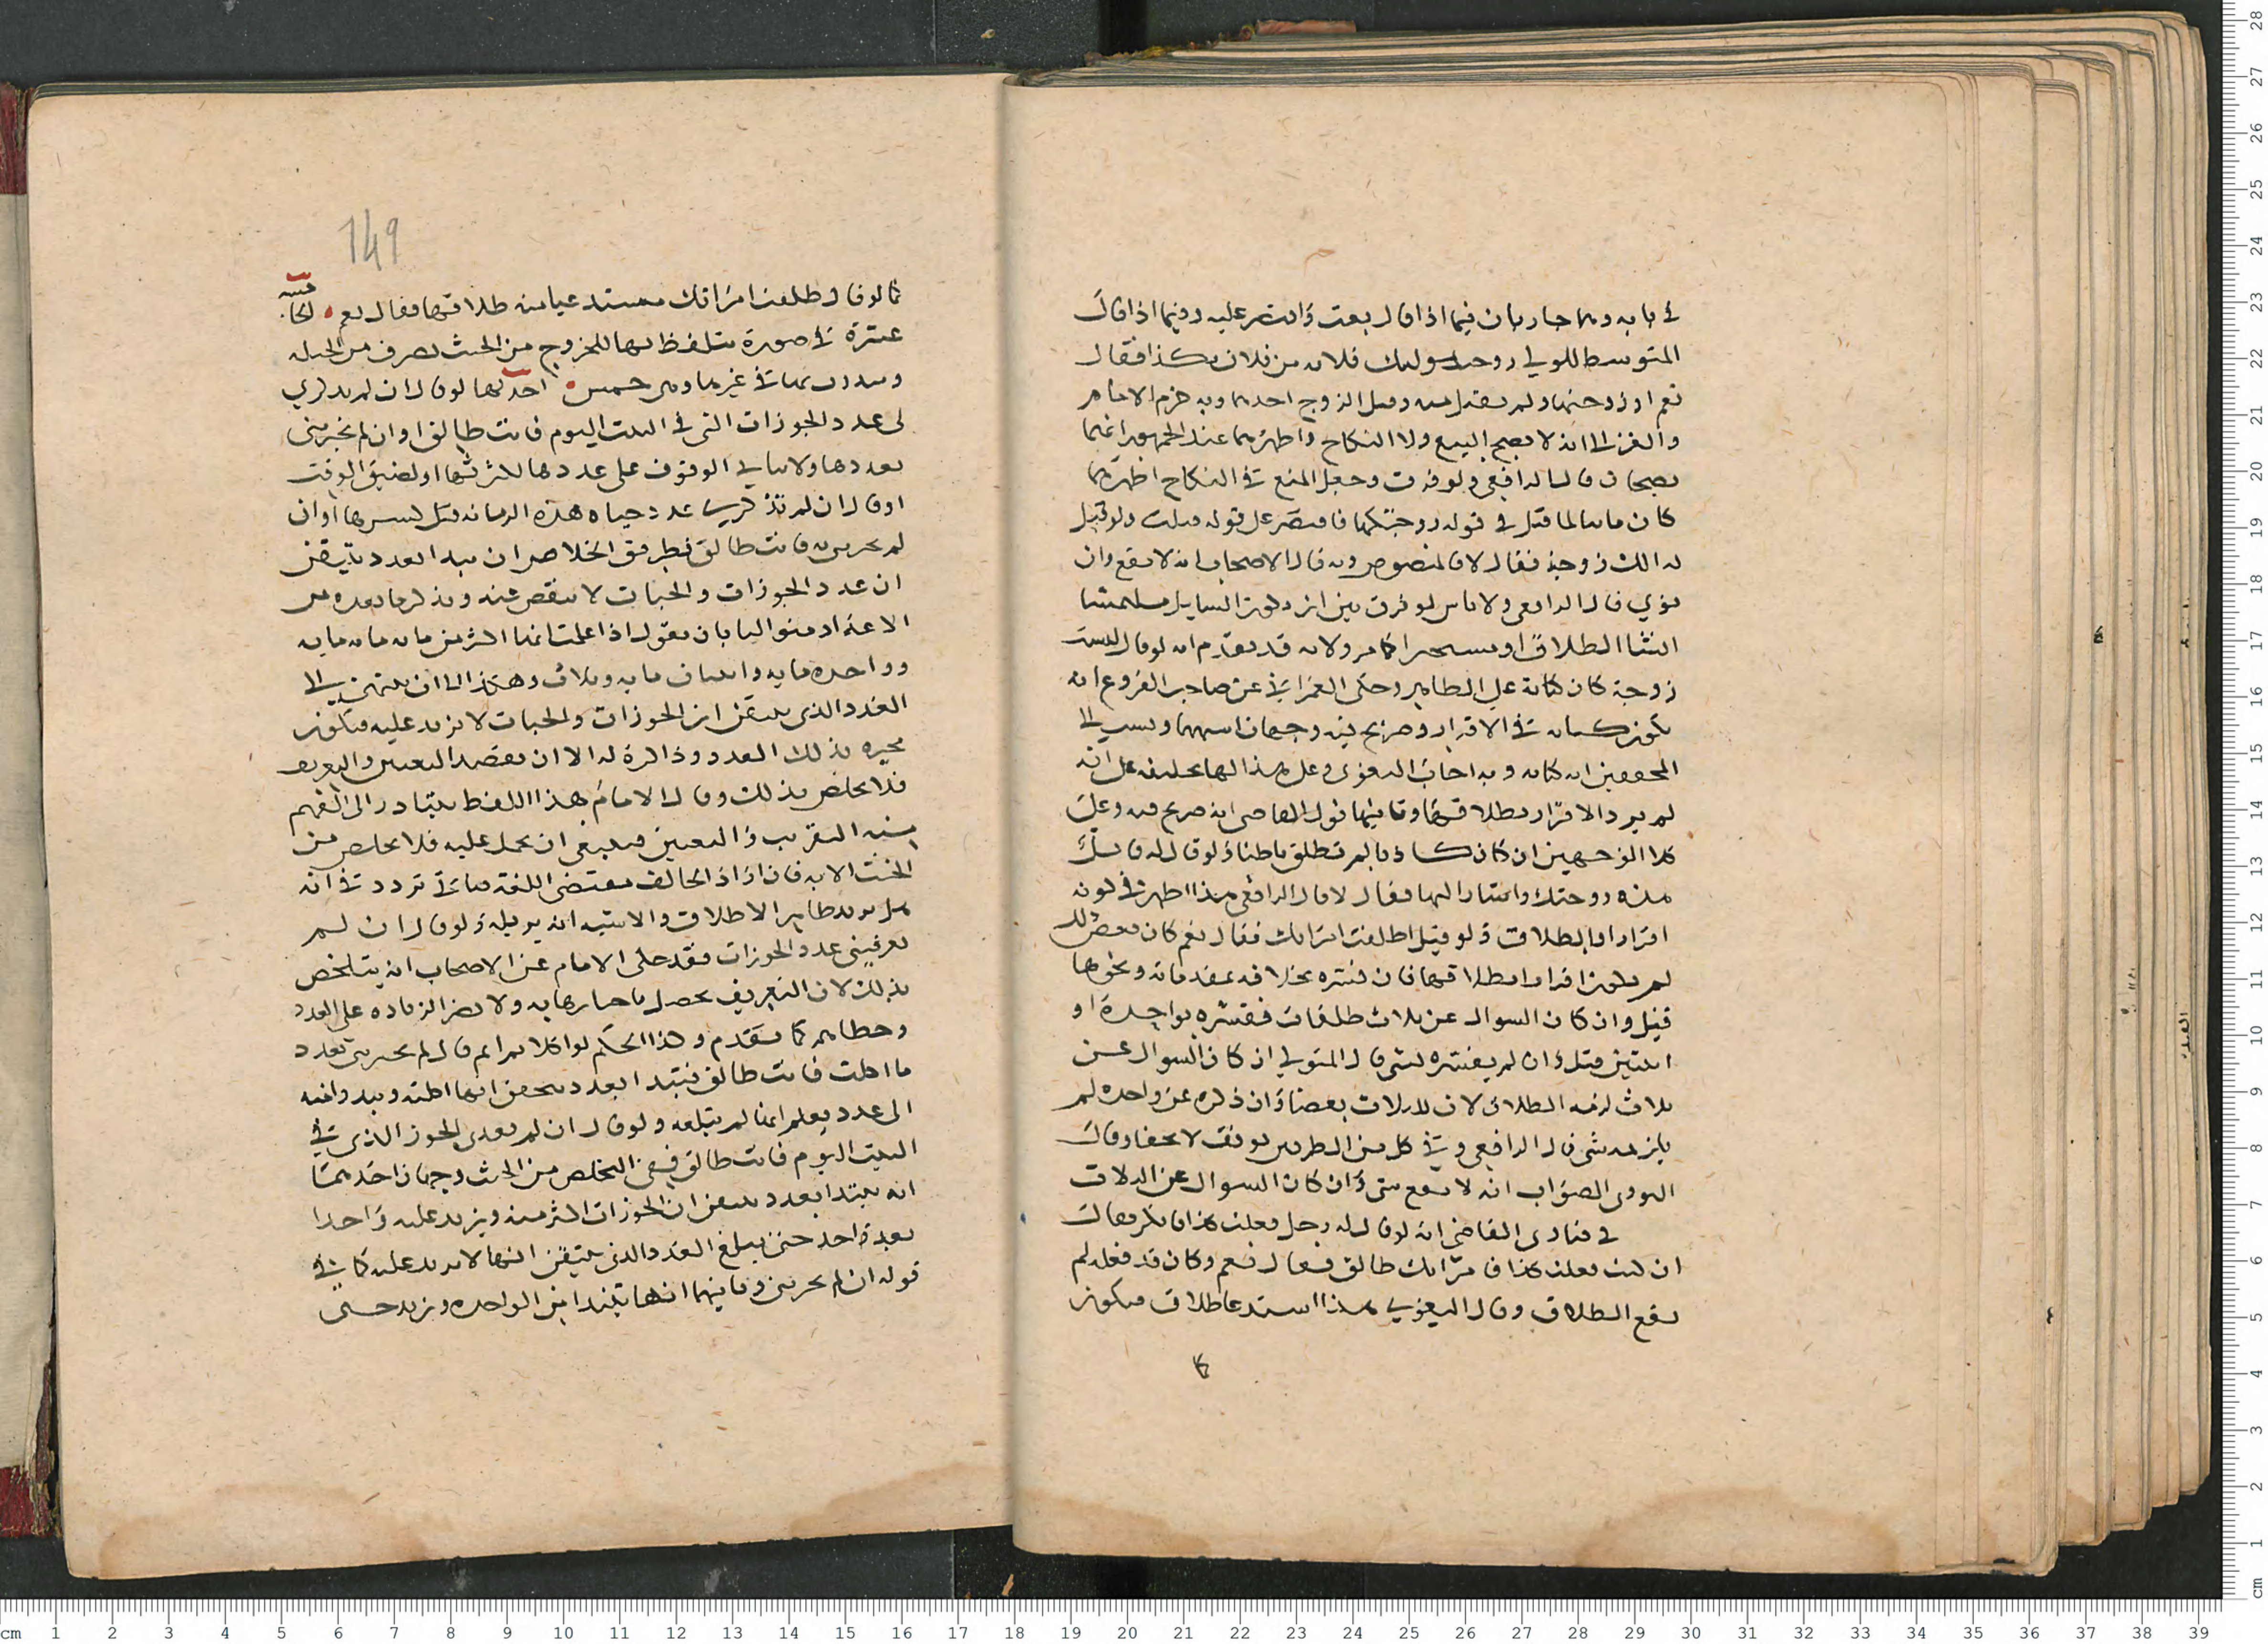 في بابه وهما جاريان فيما اذا قال بعت واشتر عليه وفيما اذا قال
المتوسط للولي زوجت وليتك فلانة من فلان بكذا فقال
نعم او زوجتها ولم يقبل الزوج احدهما وبه جزم الامام
والغزالي انه لا يصح البيع ولا النكاح واظهرهما عند الجمهور انهما
يصحان قال الرافعي ولو فرق وجعل المنع في النكاح اظهرهما
كان مائلا لما قيل في قوله زوجتكها فاقتصر على قوله قبلت ولو قيل
له الك زوجة فقال لا فالمنصوص وبه قال الاصحاب انه لا يقع وان
نوى قال الرافعي ولا باس لو فرق بين ان يكون السايل ملتمسا
انشا الطلاق او مستخبرا كما مر ولانه قد تقدم انه لو قال لست
زوجة كان كناية على الظاهر وحكى العمراني عن صاحب الفروع انه
يكون كناية في الاقرار وصريح فيه وجهان اشبههما ونسب الى
المحققين انه كناية وبه اجاب البغوي وعلى هذا لها تحليفه على انه
لم يرد الاقرار بطلاقها وثانيهما قول القاضي انه صريح فيه وعلى
كلا الوجهين ان كان كاذبا لم تطلق باطنا ولو قال له قائل
هذه زوجتك واشار اليها فقال لا قال الرافعي هذا اظهر في كونه
اقرارا بالطلاق ولو قيل اطلقت امراتك فقال نعم كان بعض ذلك
لم يكن اقرارا بطلاقها فان فسره بخلافه بمقدماته ونحوها
قبل وان كان السوال عن ثلاث طلقات ففسره بواحدة او
اثنتين قبل وان لم يفسره بشي قال المتولي ان كان السوال عن
ثلاث لزمه الطلاق لان للثلاث بعضا وان ذكره عن واحدة لم
يلزمه شي قال الرافعي وفي كل من الطرفين توقف لا يخفى وقال
النووي الصواب انه لا يقع شي وان كان السوال عن الثلاث
في فتاوى القاضي انه لو قال له رجل فعلت كذا فانكر فقال
ان كنت فعلت كذا فامراتك طالق فقال نعم وكان قد فعله لم
يقع الطلاق وقال البغوي هذا استدعا طلاق فيكون
كما
149
كما لو قال طلقت امراتك مستدعيا منه طلاقها فقال نعم الحا
مسة
عشرة في صورة يتلفظ بها للخروج من الحنث تصرف من الحيلة
احدها لو قال ان لم تذكري
لي عدد الجوزات التي في البيت اليوم فانت طالق او ان لم تخبريني
بعددها ولا يتاتى الوقوف على عددها لكثرتها او لضيق الوقت
او قال ان لم تذكري عدد حبات هذه الرمانة قبل كسرها او ان
لم تخبريني فانت طالق فطريق الخلاص ان تبدا بعدد يتيقن
ان عدد الجوزات والحبات لا ينقص عنه وتذكر ما بعده من
الاعداد متواليا بان تقول اذا علمت انها اكثر من ماية ماية ماية
وواحدة ماية واثنتان ماية وثلاث وهكذا الى ان تنتهي الى
العدد الذي يتيقن ان الجوزات والحبات لا تزيد عليه فتكون
مخبرة بذلك العدد وذاكرة له الا ان يقصد التعيين والتعريف
فلا تخلص بذلك وقال الامام هذا اللفظ يتبادر الى الفهم
منه التقريب والتعيين فينبغي ان يحمل عليه فلا تخلص من
الحنث الا به فان اراد الحالف مقتضى اللغة تردد في انه
هل يريد ظاهر الاطلاق والاشبه انه يزيله ولو قال ان لم
تعرفيني عدد الجوزات فقد حكى الامام عن الاصحاب انه يتلخص
بذلك لان التعريف يحصل باخبارها به ولا يضر الزيادة على العدد
وخطاهم كما تقدم وكذا الحكم لو اكلا تمرا ثم قال لم تخبريني بعدد
ما اكلت فانت طالق فتبتدا بعدد يتحقق انها اكلته وتبدو منه
الى عدد يعلم انها لم تبلغه ولو قال ان لم تعدي الجوز الذي في
البيت اليوم فانت طالق ففي التخلص من الحنث وجهان احدهما
انه تبتدا بعدد يتيقن ان الجوزات اكثر منه وتزيد عليه واحدا
بعد واحد حتى يبلغ العدد الذي يتيقن انها لا تزيد عليه كما في
قوله ان لم تخبريني وثانيهما انها تبتدا من الواحدة وتزيد حتى